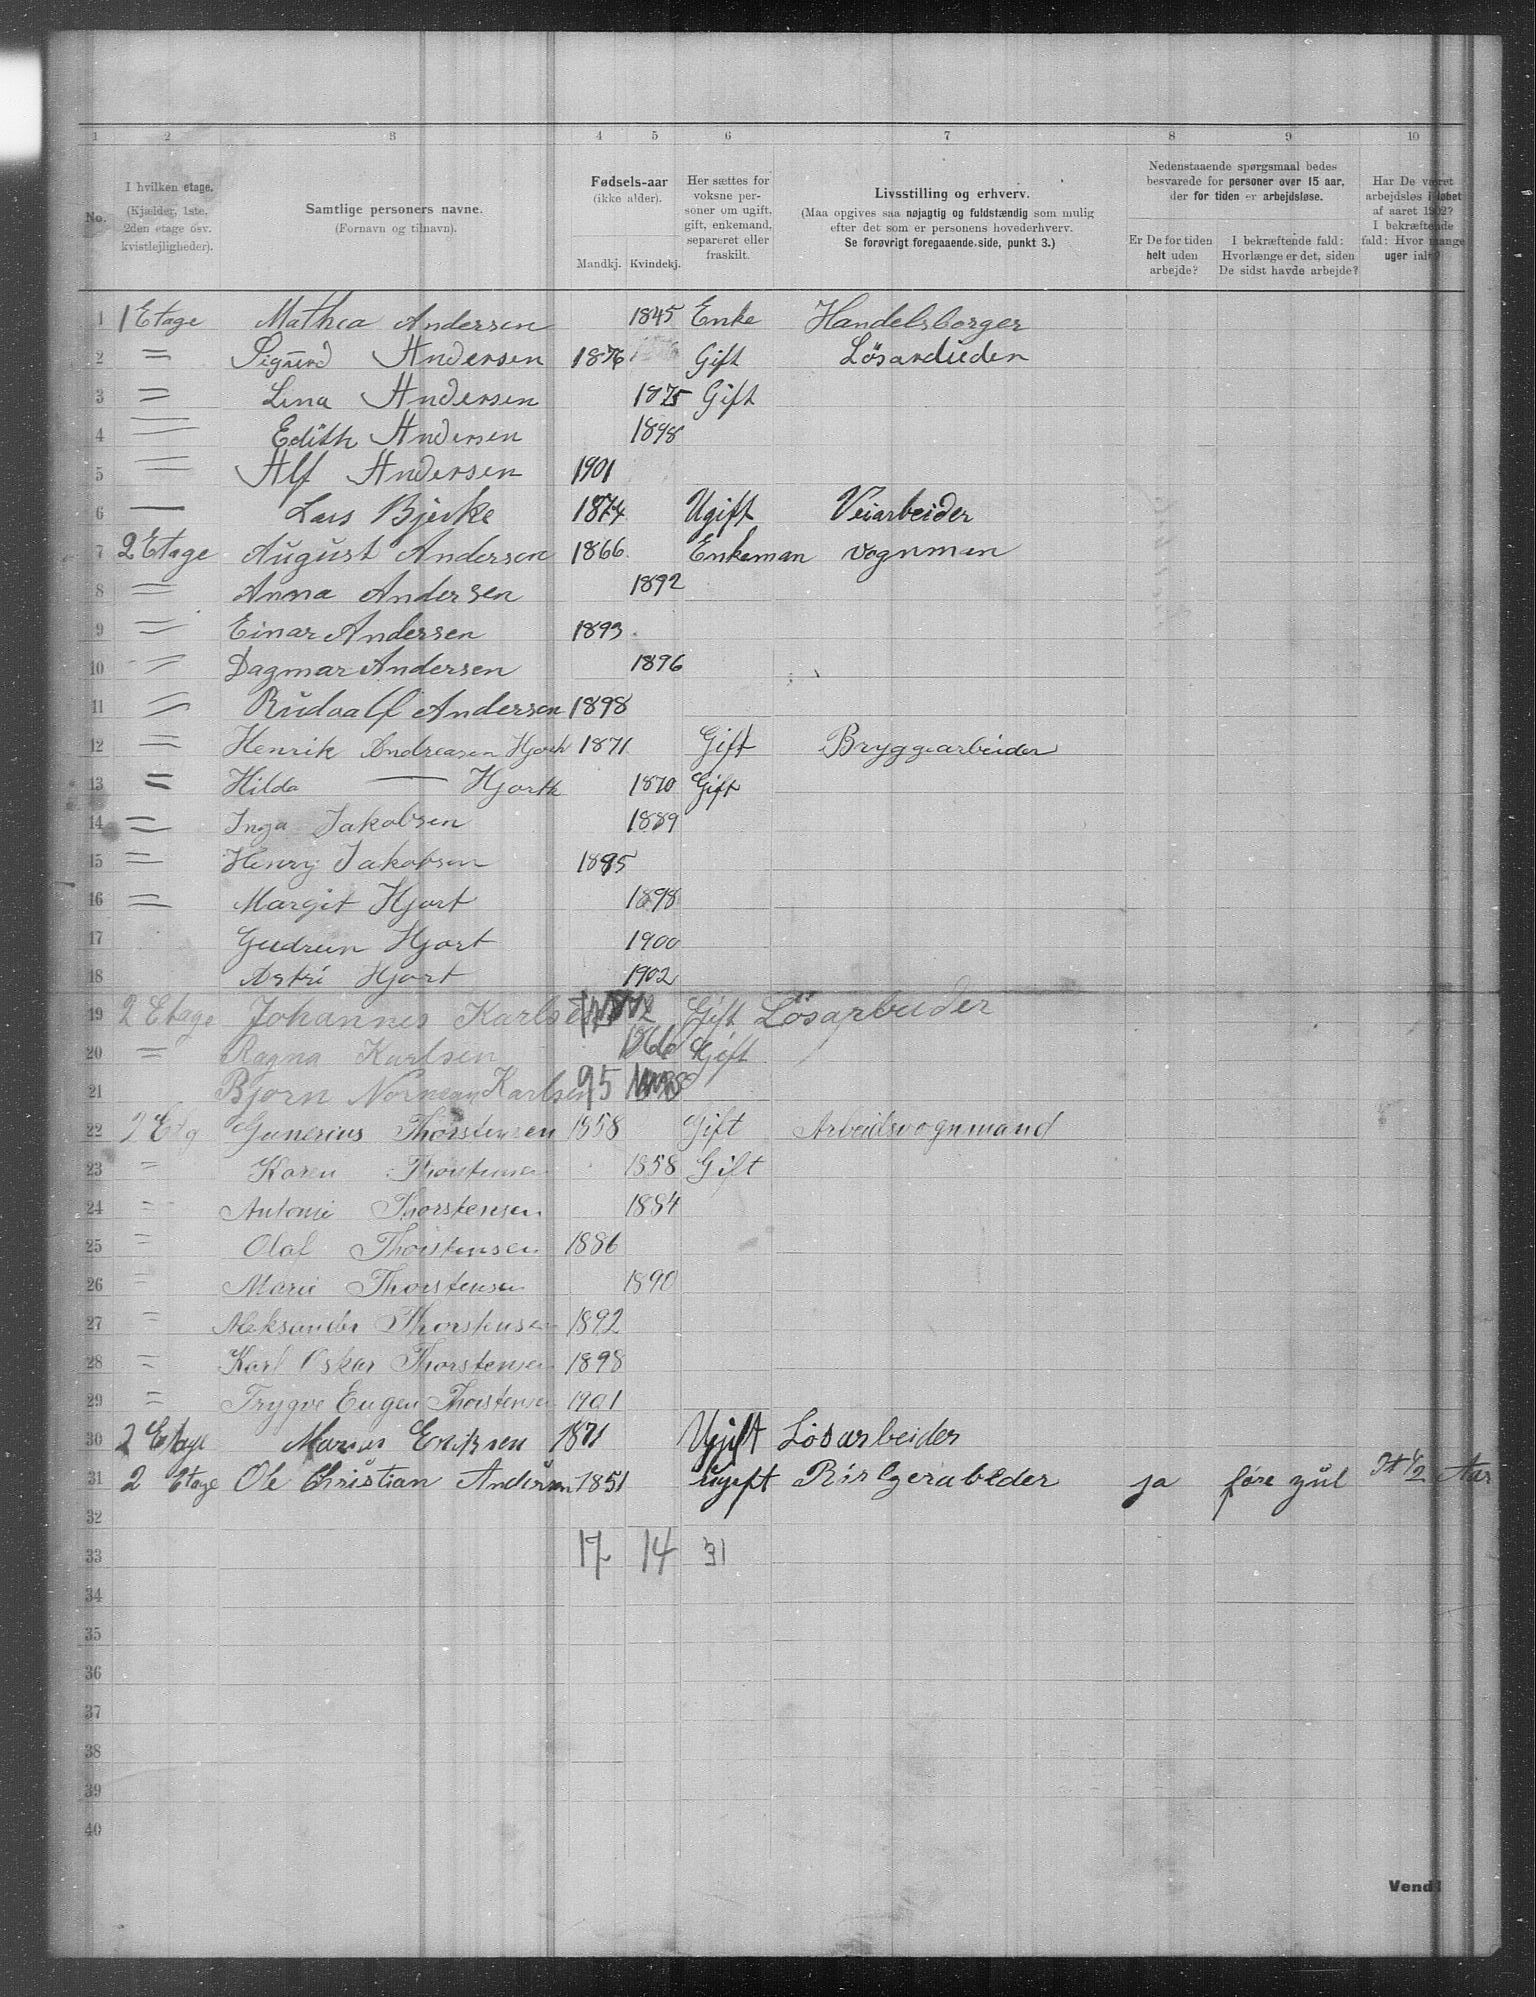 1 2 3 4 5 6 7 8 9 10
No.
I hvilken etage.
(Kjælder, 1ste,
2den etage osv.
kvistlejligheder).
Samtlige personers navne.
(Fornavn og tilnavn).
Fødsels-aar
(ikke alder).
Mandkj. Kvindekj.
Her sættes for
voksne per-
soner om ugift,
gift, enkemand,
separeret eller
fraskilt.
Livsstilling og erhverv.
(Maa opgives saa nøjagtig og fuldstændig som mulig
efter det som er personens hovederhverv.
Se forøvrigt foregaaende side, punkt 3.)
Nedenstaaende spørgsmaal bedes
besvarede for personer over 15 aar,
der for tiden er arbejdsløse.
Er De for tiden
helt uden
arbejde?
I bekræftende fald:
Hvorlænge er det, siden
De sidst havde arbejde?
Har De været
arbejdsløs i løbet
af aaret 1902?
I bekræftende
fald: Hvor mange
uger ialt?
1 1 Etage Mathea Andersen 1845 Enke Handelsborger
2 = Sigurd Andersen 1876 Gift
3 = Lina Andersen 1875 Gift
4 = Edith Andersen 1898
5 = Alf Andersen 1901
6 — Lars Bjerke 1874 Ugift Veiarbeider
7 2 Etage August Andersen 1866 Enkeman vognman
8 = Anna Andersen 1892
9 = Einar Andersen 1893
10 = Dagmar Andersen 1896
11 = Rudoalf Andersen 1898
12 = Henrik Andreasen Hjorth 1871 Gift Bryggearbeider
13 = Hilda — Hjorth 1870 Gift
14 = Inga Jakobsen 1889
15 = Henry Jakobsen 1895
16 = Margit Hjort 1898
17 Gudrun Hjort 1900
18 Astri Hjort 1902
19 2 Etage Johannes Karlsen Gift Lösarbeider
20 = Ragna Karlsen 1866 Gift
21 Bjorn Norman Karlsen 95
22 2 Etg Gunerius Thorstensen 1858 Gift Arbeidsvognmand
23 " Karen Thorstensen 1858 Gift
24 " Antonie Thorstensen 1884
25 " Olaf Thorstensen 1886
26 " Marie Thorstensen 1890
27 " Aleksander Thorstensen 1892
28 " Karl Oskar Thorstensen 1898
29 " Trygve Eugen Thorstensen 1901
30 2 Etage Marius Eriksen 1871 Ugift Lösarbeider
31 2 Etage Ole Christian Andersen 1851 ugift ja före jul 1/2 Aar
32
33 17 14 31
34
35
36
37
38
39
40
Vend!